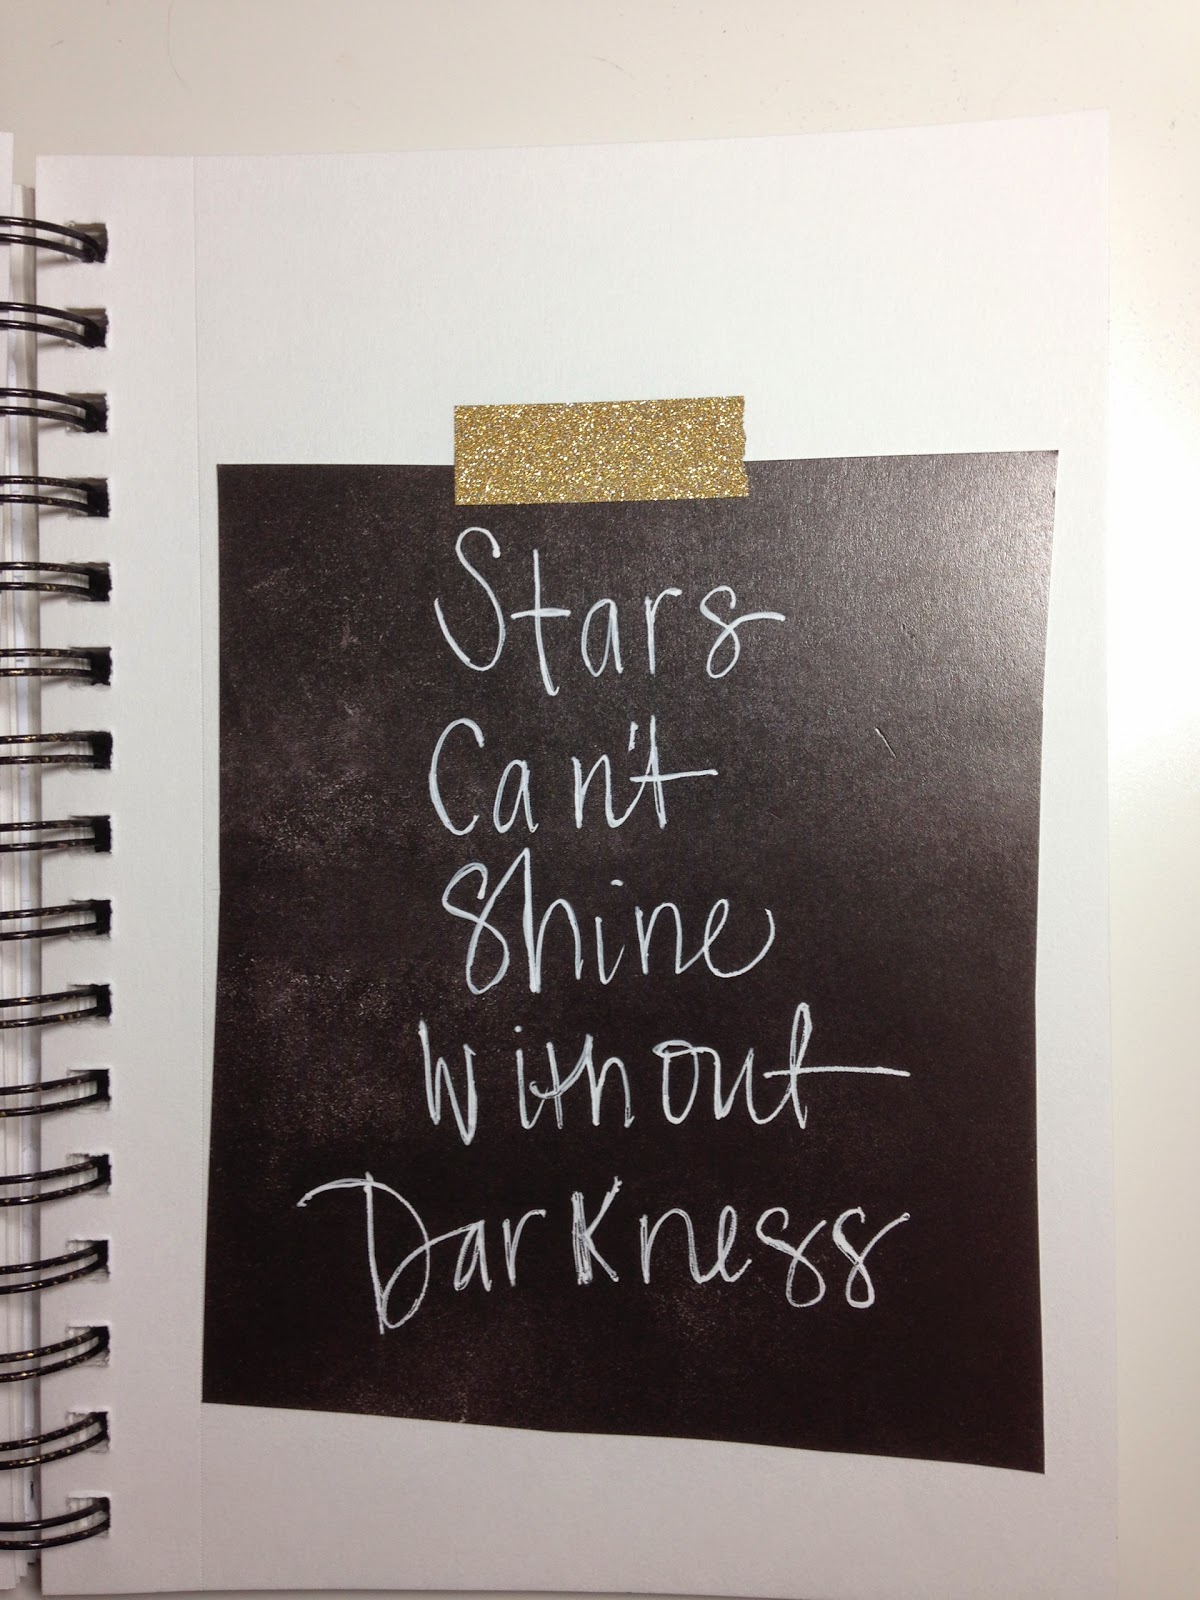 Stars
Can't
Shine
Without
Darkness